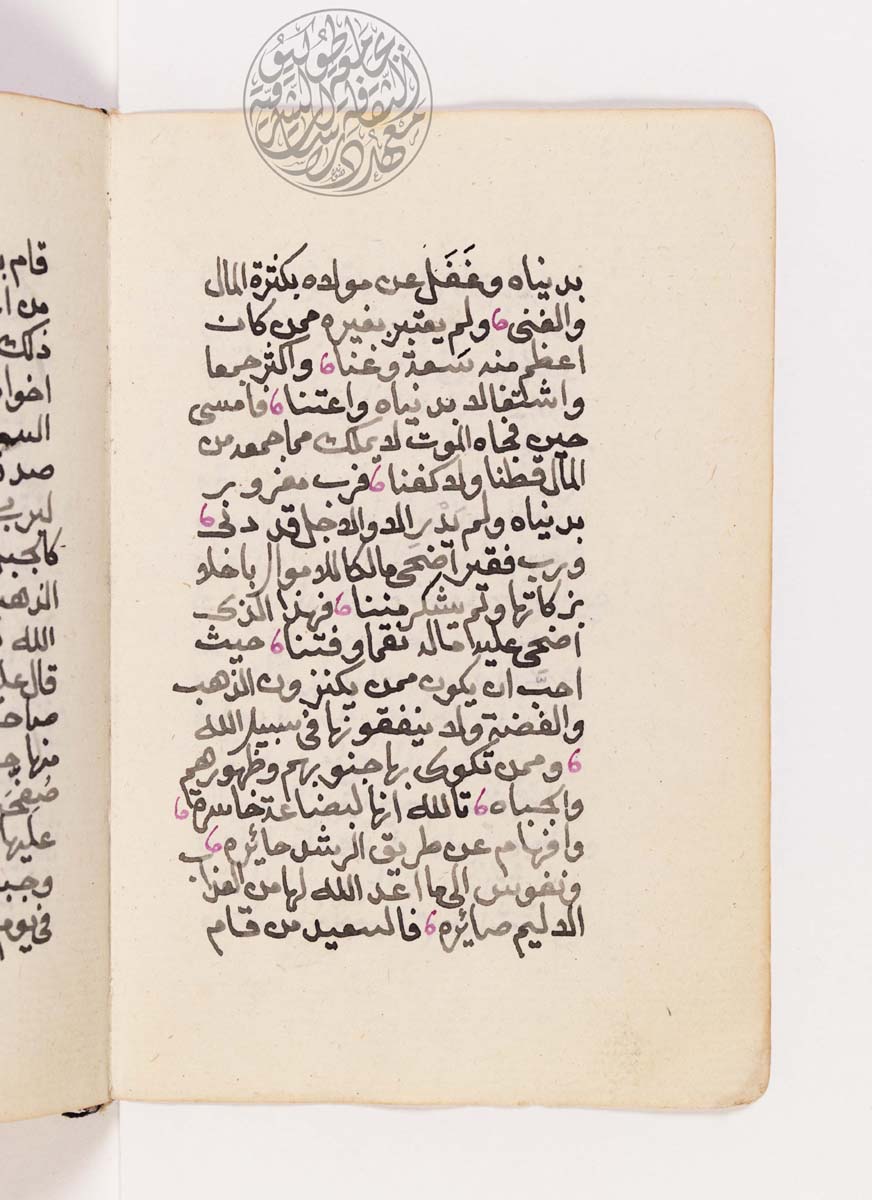 بدنياه وغَفَل عن مولاه بكثرة المال
والغنى ولم يعتبر بغيره ممن كان
اعظم منه سَعة وغنا واكثر جمعا
واشتغالا بدنياه واعتنا فامسى
حين فجاه الموت لا يملك مما جمعه من
المال قطنا ولا كفنا فرب مغرور
بدنياه ولم يَدْرِ الا والاجل قد دنى
ورب فقير اضحَى مالكا للاموال باخلا
بزكاتها ولم يشكر مننا فهذا الذى
اضحى عليه ماله نقما وفتنا حيث
احبَّ ان يكون ممن يكنزون الذهب
والفضة ولا ينفقونها فى سبيل الله
وممن تكوى بها جنوبهم وظهورهم
والجباه تالله انها لبضاعة خاسرة
وافهام عن طريق الرشد حائره
ونفوس الى ما اعد الله لها من العذاب
الاليم صائره فالسعيد من قام
قام ب
من ا
ذلك
اخوا
السم
صدق
ليرب
كالجب
الذهب
الله
قال عل
صاحـ
منها حـ
صُفِّحَـ
عليها
وجبـ
فى يوم